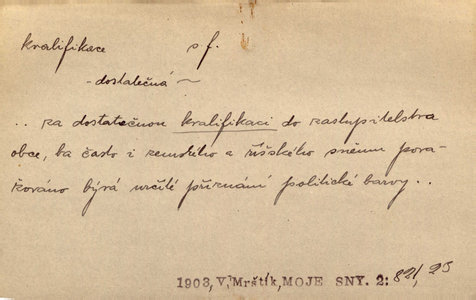 kvalifikace sf.
-dostatečná~
.. za dostatečnou kvalifikaci do zastupitelstva
obce, ba často i zemského a říšského sněmu pova-
žováno bývá určité přiznání politické barvy ..
1903, V. Mrštík, MOJE SNY. 2: 821, 23